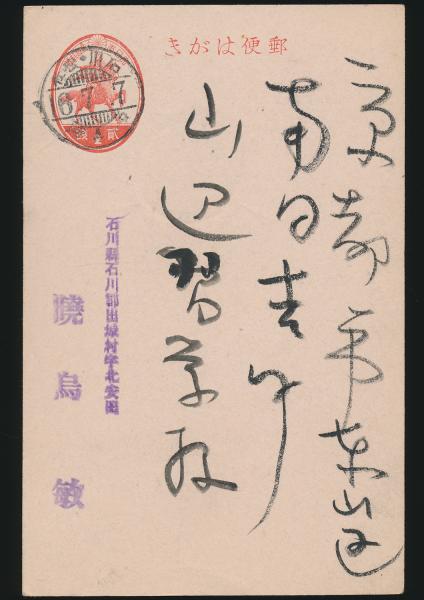 郵便はがき
京都市東山区
南日吉町
山辺習学殿
石川縣石川郡出城村字北安田
曉烏敏
石川
6.7.7